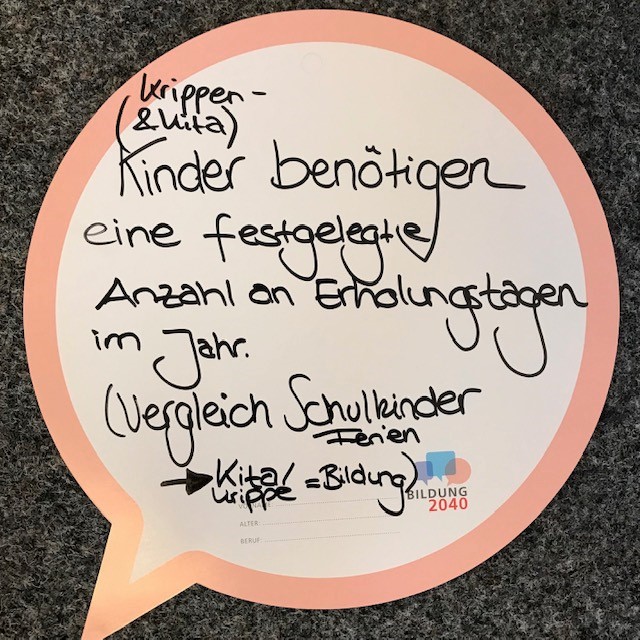 Krippen-
(& Kita)
Kinder benötigen
eine festgelegte
Anzahl an Erholungstagen
im Jahr.
(Vergleich Schulkinder
Ferien
→ Kita/
Krippe = Bildung)
BILDUNG
2040
ALTER:
BERUF: